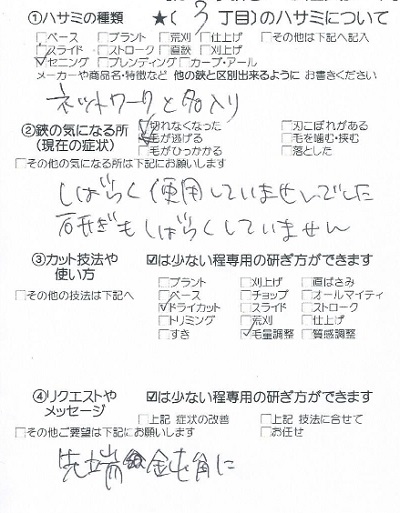 ①ハサミの種類 ★( 3 丁目)のハサミについて
□ベース □ブラント □荒刈 □仕上げ □その他は下記へ記入
□スライド □ストローク □直鋏 □刈上げ
☑セニング □ブレンディング □カーブ・アール
メーカーや商品名・特徴など 他の鋏と区別出来るように お書きください
ネットワークと名入り
②鋏の気になる所
(現在の症状)
☑切れなくなった □刃こぼれがある
☑毛が逃げる □毛を噛む・挟む
□毛がひっかかる □落とした
□その他の気になる所は下記にお願いします
しばらく使用していませんでした
研ぎもしばらくしていません
③カット技法や
使い方
☑は少ない程専用の研ぎ方ができます
□その他の技法は下記へ
□ブラント □刈上げ □直ばさみ
□ベース □チョップ □オールマイティ
☑ドライカット □スライド □ストローク
□トリミング □荒刈 □仕上げ
□すき ☑毛量調整 □質感調整
④リクエストや
メッセージ
☑は少ない程専用の研ぎ方ができます
□上記 症状の改善 □上記 技法に合せて
□その他ご要望は下記にお願いします □お任せ
先端 鈍角に